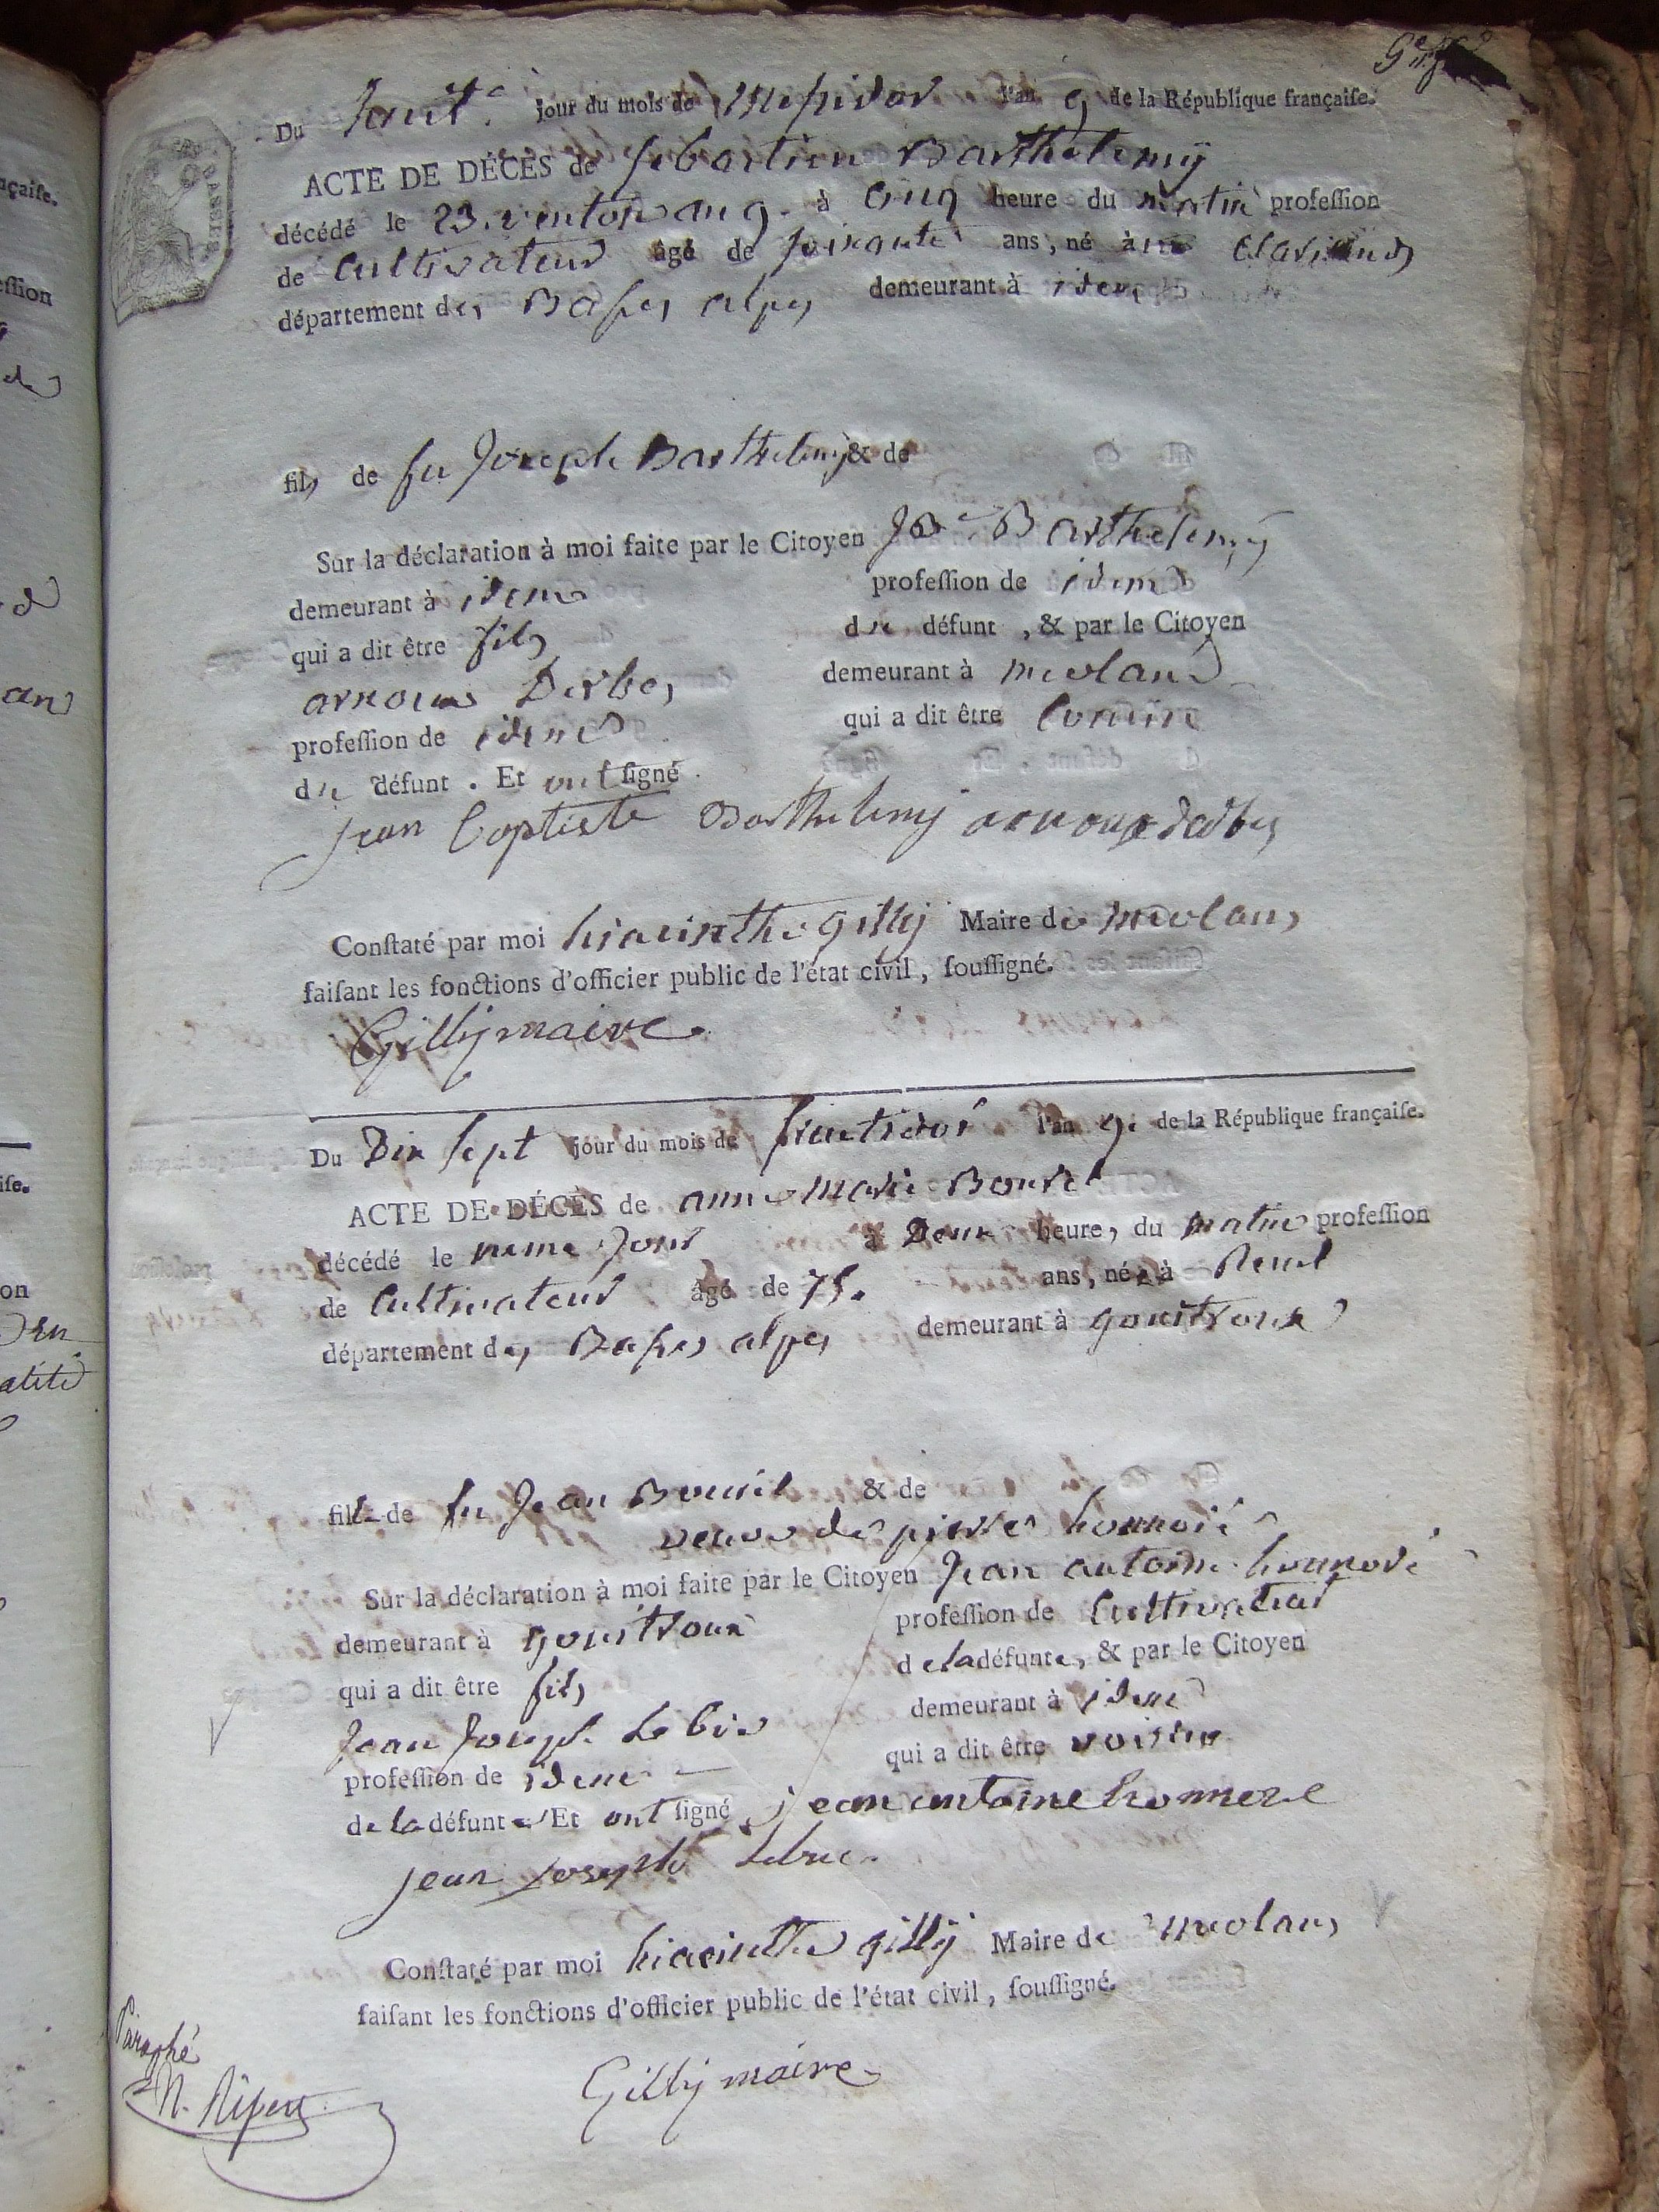 9e. f.
Du huit jour du mois de Messidor l'an 9 de la République françaiſe.
ACTE DE DÉCÈS de sebastien Barthelemÿ
décédé le 23. ventose an 9. à cinq heure du matin profeſſion
de Cultivateur âgé de soixante ans, né à
département des Basses alpes demeurant à idem
fils de feu Joseph Barthelemy & de
Sur la déclaration à moi faite par le Citoyen Jn Bte Barthelemy
demeurant à idem profeſſion de idem
qui a dit être fils du défunt, & par le Citoyen
arnoux Derbes demeurant à meolans
profeſſion de idem qui a dit être Cousin
du défunt. Et ont ſigné
jean baptiste Barthelemy arnoux derbes
Conſtaté par moi hiacinthe gilly Maire de meolans
faiſant les fonctions d'officier public de l'état civil, ſouſſigné.
Gilly maire
Du Dix sept jour du mois de fructidor l'an 9. de la République françaiſe.
ACTE DE DÉCÈS de anne Marie Bourel
décédé le meme Jour à Deux heures du matin profeſſion
de Cultivateur âgé de 75. ans, née à Revel
département des Basses alpes demeurant à goustroux
fille de feu Jean Bourel & de
veuve de pierre honnoré
Sur la déclaration à moi faite par le Citoyen Jean antoine honnoré
demeurant à goustroux profeſſion de Cultivateur
qui a dit être fils de la défunte, & par le Citoyen
Jean Joseph Lebre demeurant à idem
profeſſion de idem qui a dit être voisin
de la défunte Et ont ſigné jean antoine honnoré
jean joseph Lebre
Conſtaté par moi hiacinthe gilly Maire de meolans
faiſant les fonctions d'officier public de l'état civil, ſouſſigné.
Gilly maire
Paraphé
N. Ripert